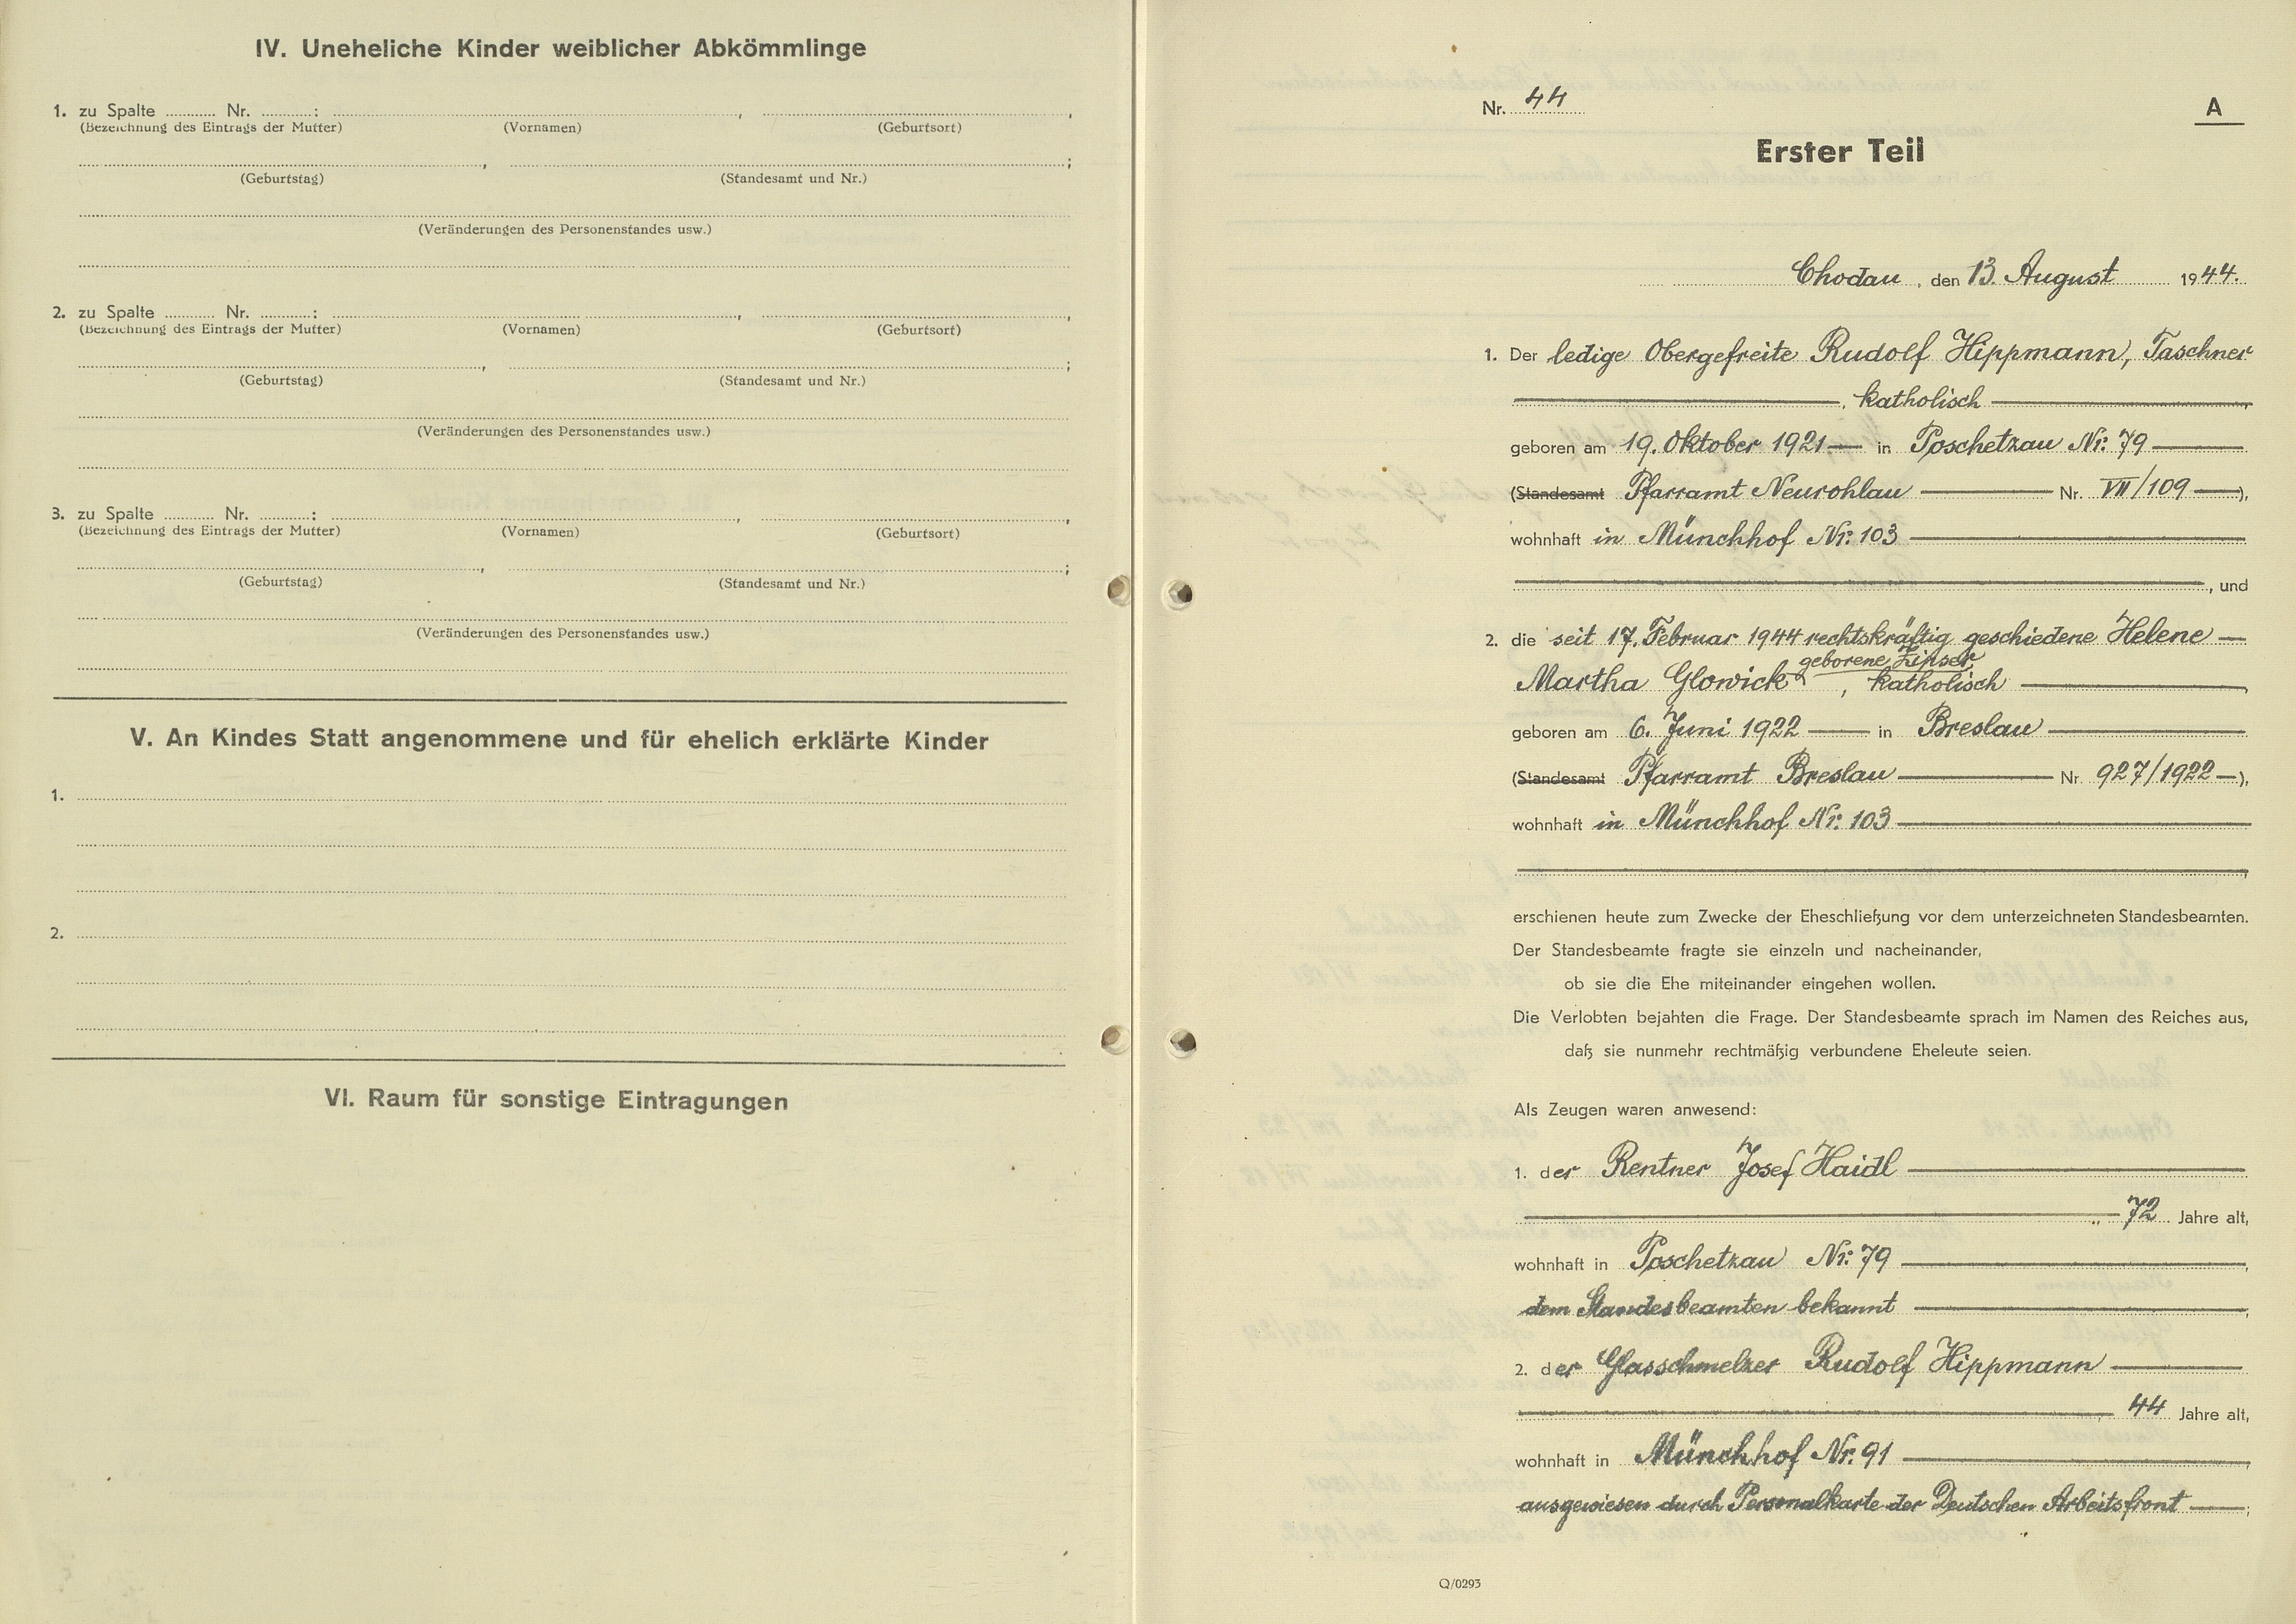 IV. Uneheliche Kinder weiblicher Abkömmlinge
1. zu Spalte .......... Nr. ..........: , ,
(Bezeichnung des Eintrags der Mutter) (Vornamen) (Geburtsort)
, ;
(Geburtstag) (Standesamt und Nr.)
(Veränderungen des Personenstandes usw.)
2. zu Spalte .......... Nr. ..........: , ,
(Bezeichnung des Eintrags der Mutter) (Vornamen) (Geburtsort)
, ;
(Geburtstag) (Standesamt und Nr.)
(Veränderungen des Personenstandes usw.)
3. zu Spalte .......... Nr. ..........: , ,
(Bezeichnung des Eintrags der Mutter) (Vornamen) (Geburtsort)
, ;
(Geburtstag) (Standesamt und Nr.)
(Veränderungen des Personenstandes usw.)
V. An Kindes Statt angenommene und für ehelich erklärte Kinder
1.
2.
VI. Raum für sonstige Eintragungen
Nr. 44
A
Erster Teil
Chodau, den 13. August 1944.
1. Der ledige Obergefreite Rudolf Hippmann, Taschner
, katholisch
geboren am 19. Oktober 1921 — in Poschetzau Nr. 79
(Standesamt Pfarramt Neurohlau — Nr. VII/109 —),
wohnhaft in Münchhof Nr. 103
, und
2. die seit 17. Februar 1944 rechtskräftig geschiedene Helene —
geborene Zipser
Martha Glowick, katholisch
geboren am 6. Juni 1922 — in Breslau
(Standesamt Pfarramt Breslau — Nr. 927/1922 —),
wohnhaft in Münchhof Nr. 103
erschienen heute zum Zwecke der Eheschließung vor dem unterzeichneten Standesbeamten.
Der Standesbeamte fragte sie einzeln und nacheinander,
ob sie die Ehe miteinander eingehen wollen.
Die Verlobten bejahten die Frage. Der Standesbeamte sprach im Namen des Reiches aus,
daß sie nunmehr rechtmäßig verbundene Eheleute seien.
Als Zeugen waren anwesend:
1. der Rentner Josef Haidl
72 Jahre alt,
wohnhaft in Poschetzau Nr. 79
dem Standesbeamten bekannt
2. der Glasschmelzer Rudolf Hippmann
44 Jahre alt,
wohnhaft in Münchhof Nr. 91
ausgewiesen durch Personalkarte der Deutschen Arbeitsfront —;
Q/0293